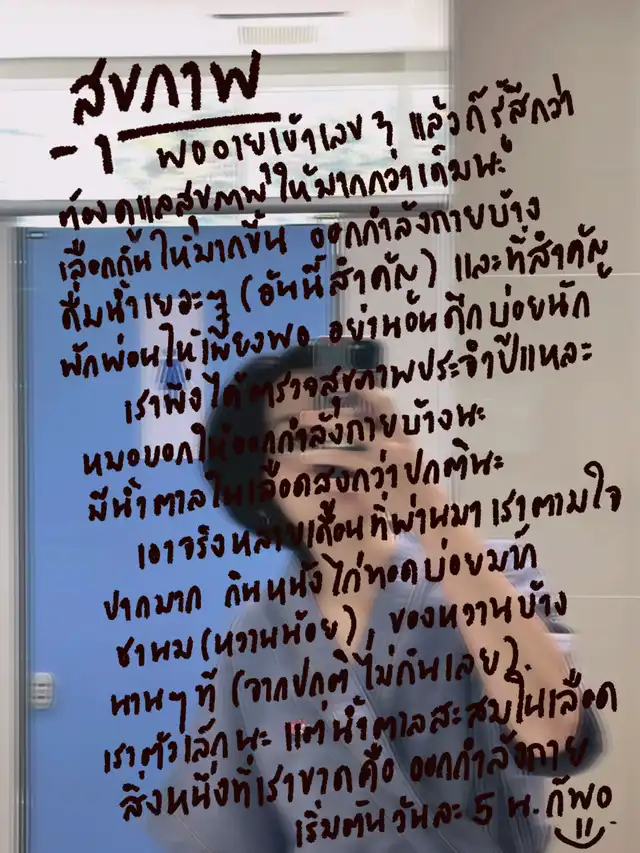 สุขภาพ
- 1 พออายุเข้าเลข 3 แล้วก็รู้สึกว่า
ต้องดูแลสุขภาพให้มากกว่าเดิมนะ
เลือกกินให้มากขึ้น ออกกำลังกายบ้าง
ดื่มน้ำเยอะๆ (อันนี้สำคัญ) และที่สำคัญ
พักผ่อนให้เพียงพอ อย่านอนดึกบ่อยนัก
เราพึ่งได้ตรวจสุขภาพประจำปีแหละ
หมอบอกให้ออกกำลังกายบ้างนะ
มีน้ำตาลในเลือดสูงกว่าปกตินะ
เอาจริงหลายเดือนที่ผ่านมา เราตามใจ
ปากมาก กินหนังไก่ทอดบ่อยมาก
ชานม (หวานน้อย), ของหวานบ้าง
นานๆ ที (จากปกติ ไม่กินเลย).
เราตัวเล็กนะ แต่น้ำตาลสะสมในเลือด
สิ่งหนึ่งที่เราขาดคือ ออกกำลังกาย
เริ่มต้นวันละ 5 น. ก็พอ